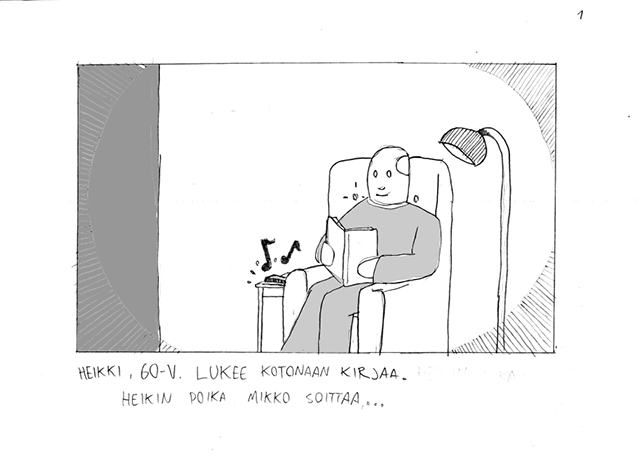 1
HEIKKI, 60-V. LUKEE KOTONAAN KIRJAA.
HEIKIN POIKA MIKKO SOITTAA,...